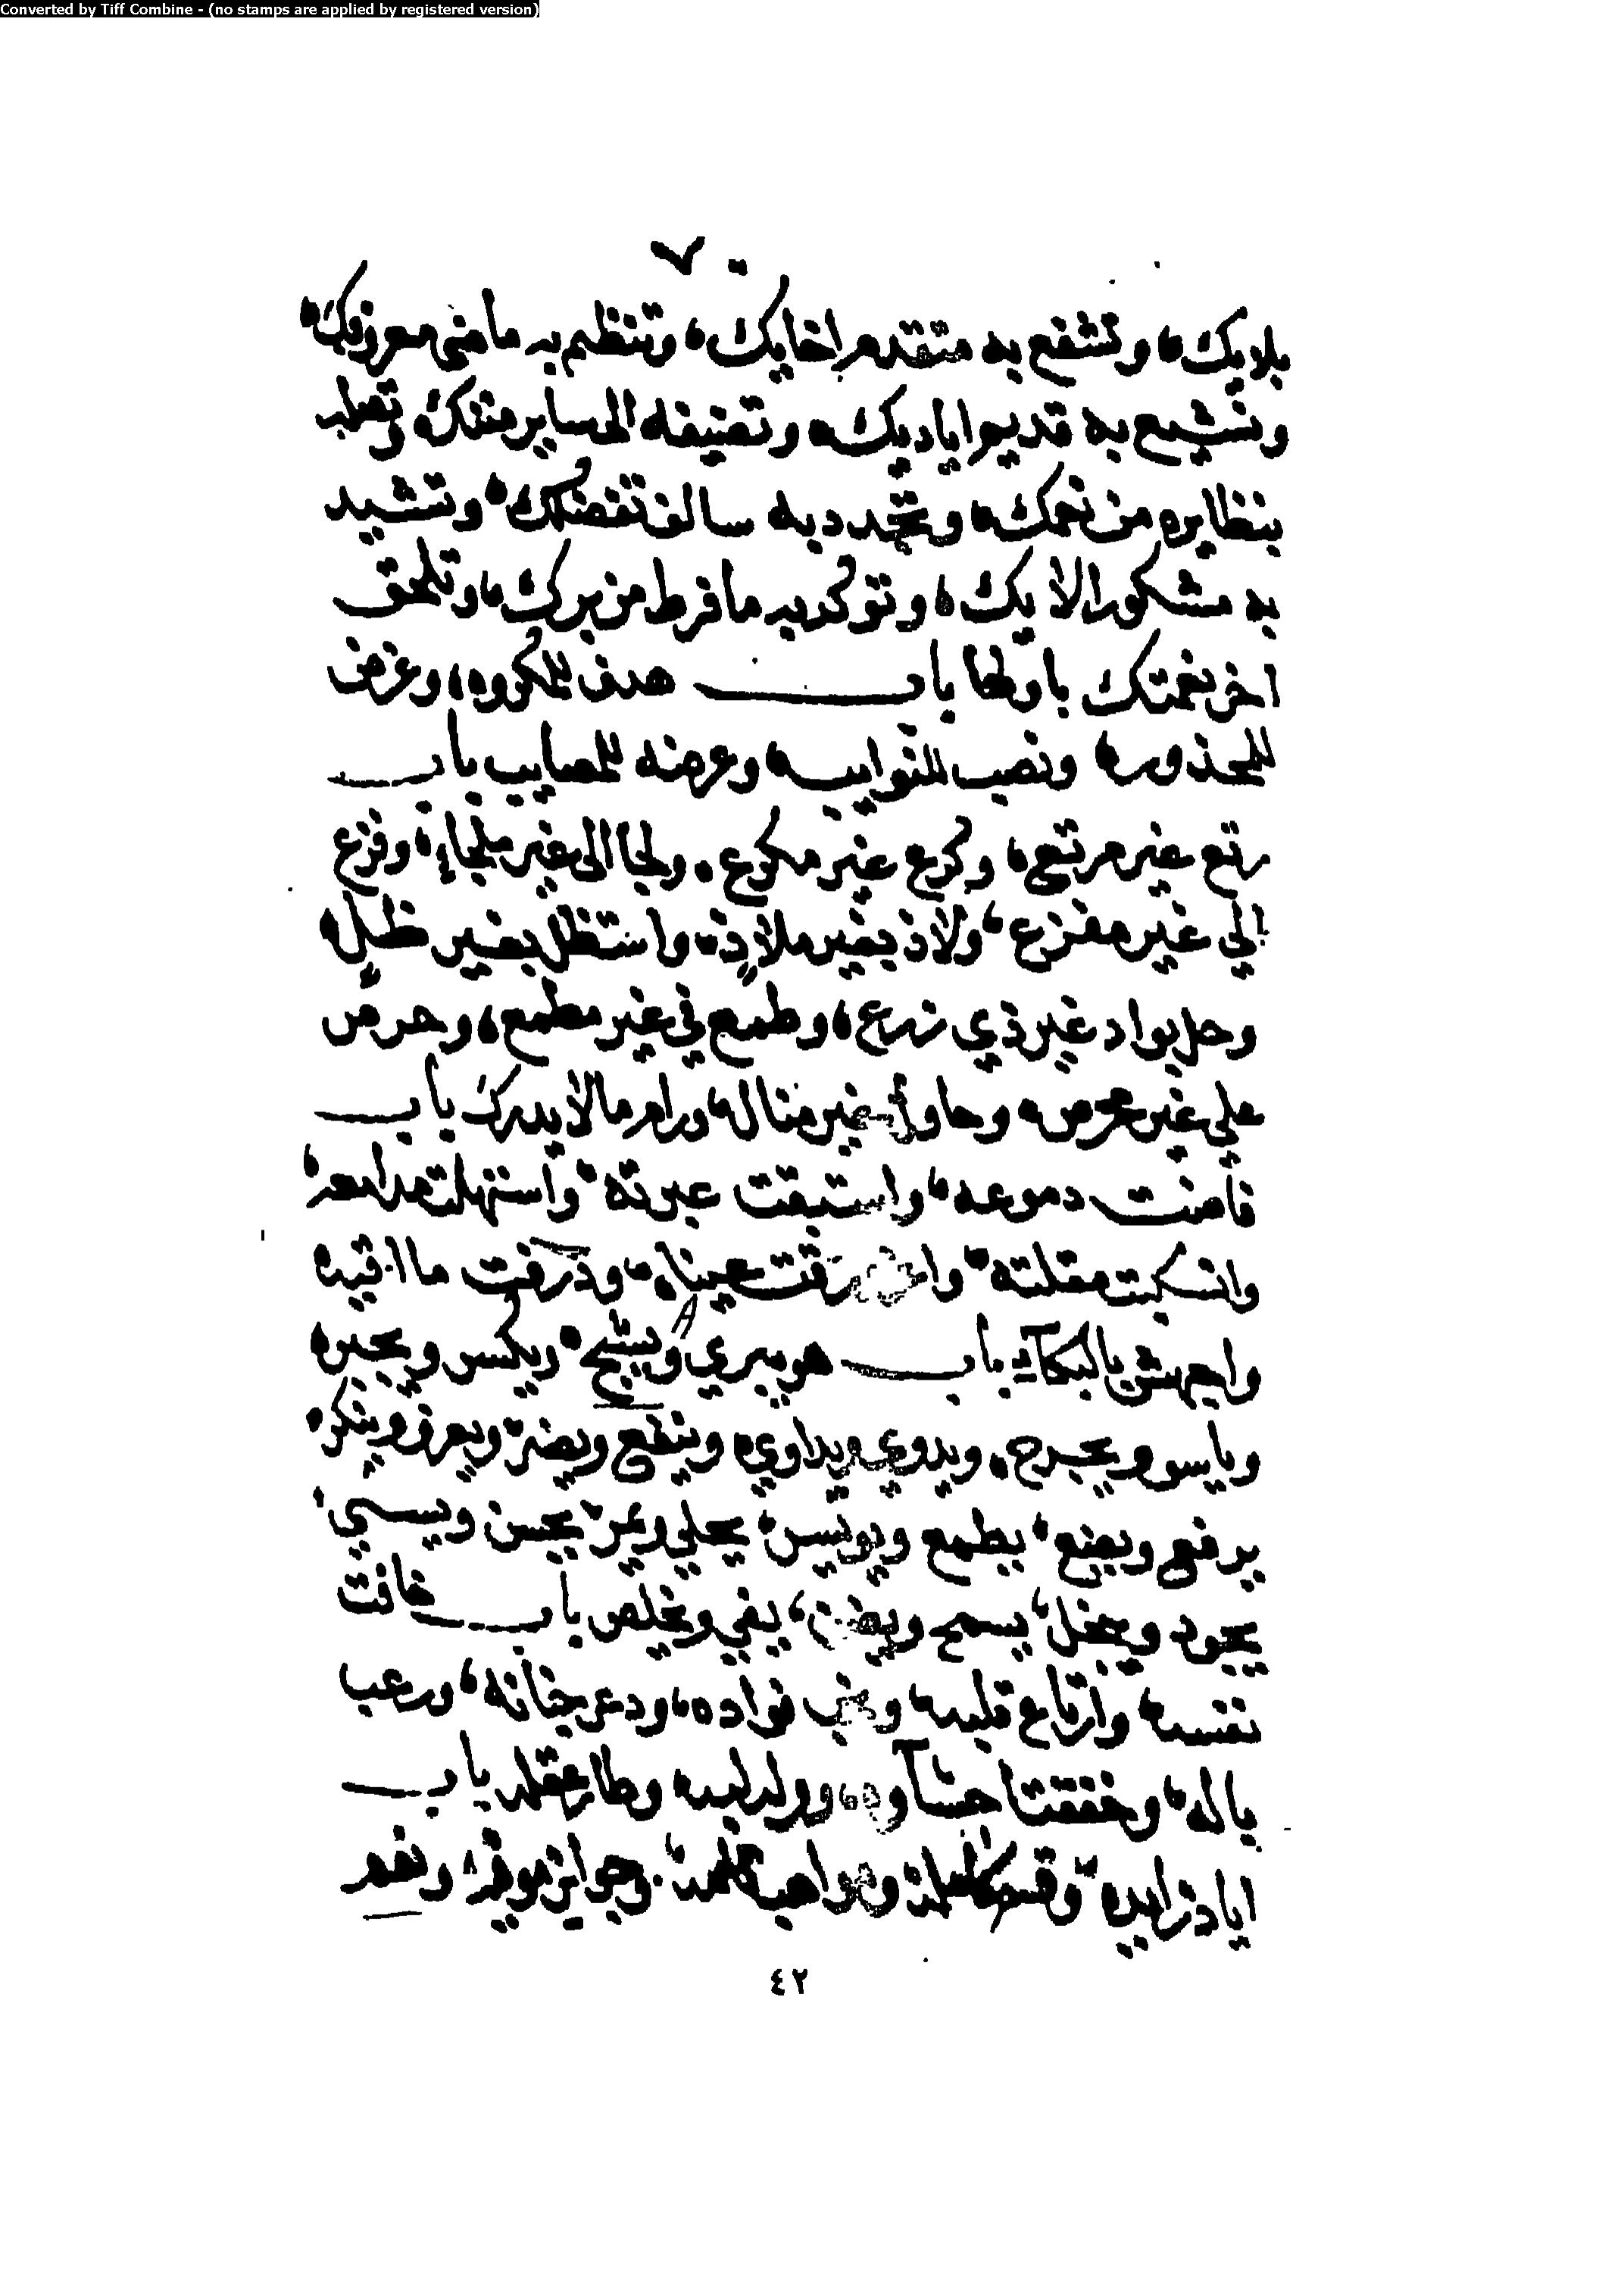 Converted by Tiff Combine - (no stamps are applied by registered version)
٧٠
بلايك، وتشفع به متقدم اخايك، وتنظم به ما مضى معروفك،
وتشيع به قديم اياديك، وتضيفه الى ساير مننك، وتصله
بنظايره من نعمك، وتجدد به سالف تفضلك، وتشيد
به مشكور الايك، وتوكد به ما فرط من برك، وتلحق
اخر نعمتك باولها باب هدف للمكروه، وغرض
للمحذور، ونصب للنوايب، وعرضه للمصايب باب
رتع غير مرتع، وكرع غير مكرع، ولجا الى غير ملجاء، وفزع
الي غير مفزع، ولاذ بغير ملاذ، واستظل بغير ظل،
وحل بواد غير ذي زرع، وطمع في غير مطمع، وحرص
علي غير محرص، وحاول غير مناله، ورام ما لا يدرك باب
فاضت دموعه، واستبقت عبرته، واستهلت مدامعه،
وانسكبت مقلته، واغرورقت عيناه، وذرفت ماقيه
واجهش بالبكاء باب هو يبري ويشج، ويكسر ويجبر،
وياسو ويجرح، ويدوي ويداوي، وينفع ويضر، ويعرف وينكر،
يرفع ويضع، يطمع ويويس، يحلي ويمر، يحسن ويسي،
يجود ويبخل، يسمح ويضن، يفي ويخلص باب خافت
نفسه، وارتاع قلبه، ونخب فواده، وذعر جنانه، ورعب
باله، وخفقت احشاوه، ووله لبه، وطار عقله باب
اياد زايده، وقسم كامله، ومواهب، وجوايز موفره، ونعم
٤٢